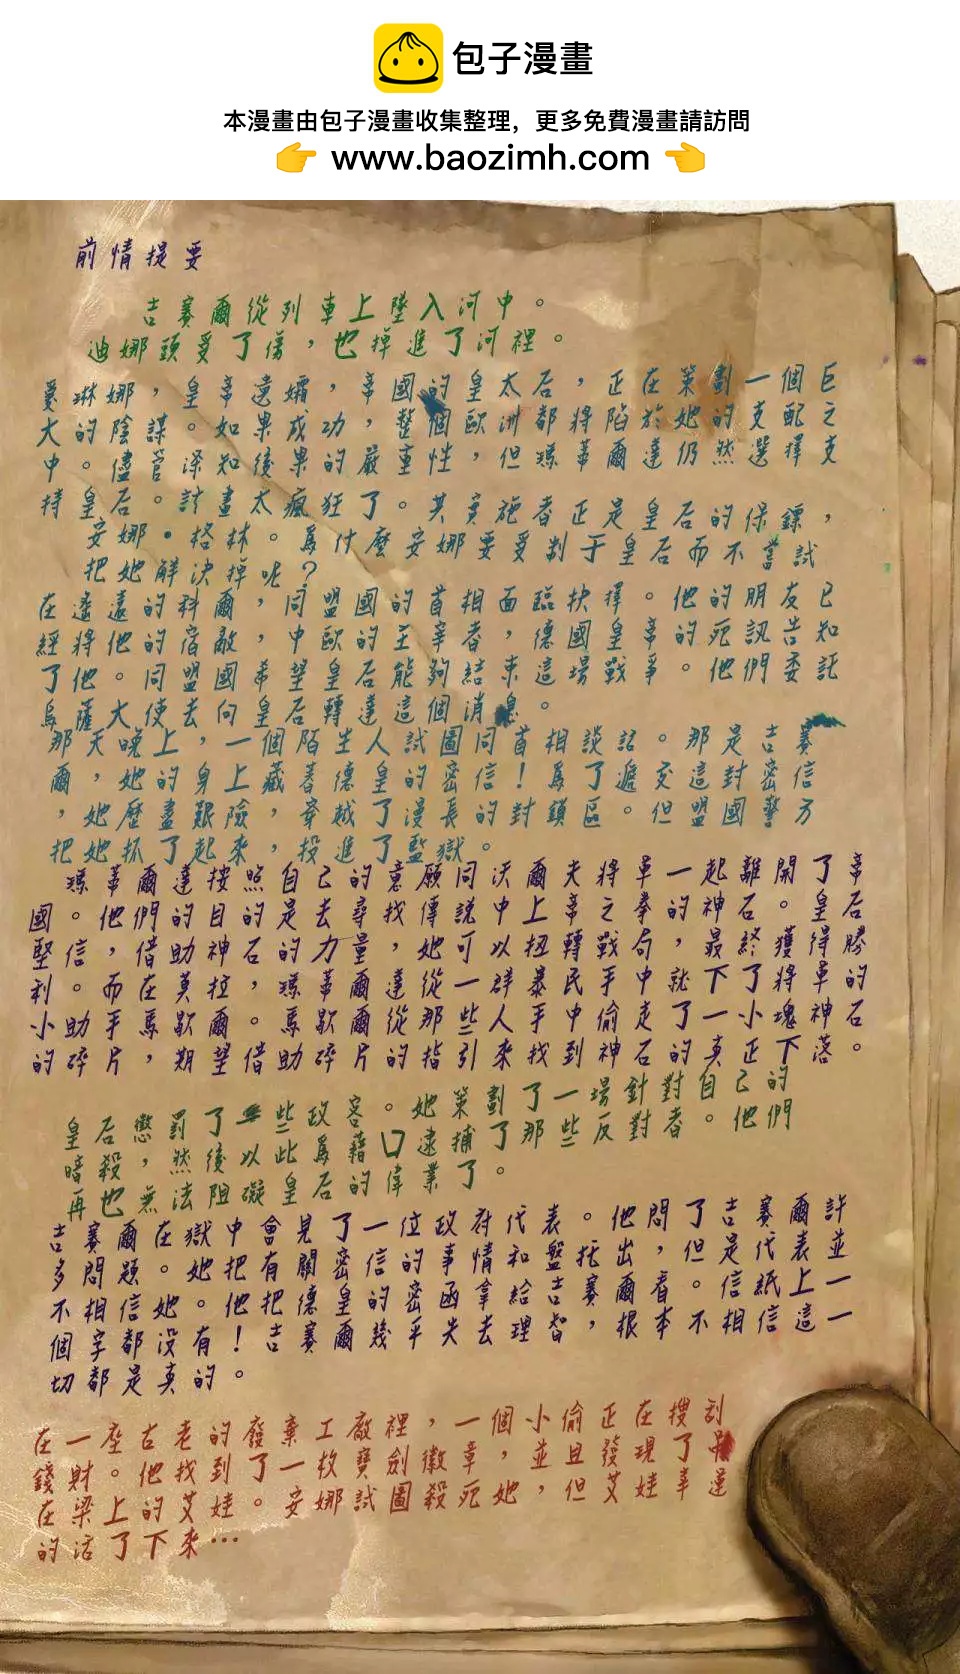 包子漫畫
本漫畫由包子漫畫收集整理，更多免費漫畫請訪問
www.baozimh.com
前情提要
吉賽爾從列車上墜入河中。
迪娜頭受了傷，也掉進了河裡。
愛琳娜，皇帝遺孀，帝國的皇太后，正在策劃一個巨
大的陰謀。如果成功，整個歐洲都將陷於她的支配之
中。儘管深知後果的嚴重性，但瑪蒂爾達仍然選擇支
持皇后。計畫太瘋狂了。其實施者正是皇后的保鏢，
安娜·格林。為什麼安娜要受制于皇后而不嘗試
把她解決掉呢？
在遙遠的科爾，同盟國的首相面臨抉擇。他的朋友已
經將他的宿敵，中歐的主宰者，德國皇帝的死訊告知
了他。同盟國希望皇后能夠結束這場戰爭。他們委託
烏薩大使去向皇后轉達這個消息。
那天晚上，一個陌生人試圖同首相談話。那是吉賽
爾，她的身上藏著德皇的密信！為了遞交這封密信
，她歷盡艱險，穿越了漫長的封鎖區。但盟國警方
把她抓了起來，投進了監獄。
瑪蒂爾達按照自己的意願同沃爾夫將軍一起離開了帝
國。他們的目的是去尋找傳說中上帝之拳的神石。皇后
堅信，借助神石的力量，她可以扭轉戰局，最終獲得勝
利。而在莫拉，瑪蒂爾達從一群暴民手中救下了將軍的
小助手馬歇爾。馬歇爾從那些人手中偷走了一小塊神石
的碎片，期望借助碎片的指引來找到神石的真正下落。
皇后懲罰了一些政客。她策劃了一場針對自己的
暗殺，然後以此為藉口逮捕了那些反對者。他們
再也無法阻礙皇后的偉業了。
吉賽爾在獄中會見了一位政府代表。他問了吉賽爾許
多問題。她把有關密信的事情和盤托出，但是代表並
不相信她。他把德皇的密函拿給吉賽爾看。信紙上一
個字都沒有！吉賽爾幾乎失去理智，根本不相信這一
切都是真的。
在一座古老的廢棄工廠裡，一個小偷正在搜刮
錢財。他找到了一枚寶劍徽章，並且發現了吊
在梁上的艾娃。安娜試圖殺死她，但艾娃幸運
的活了下來…